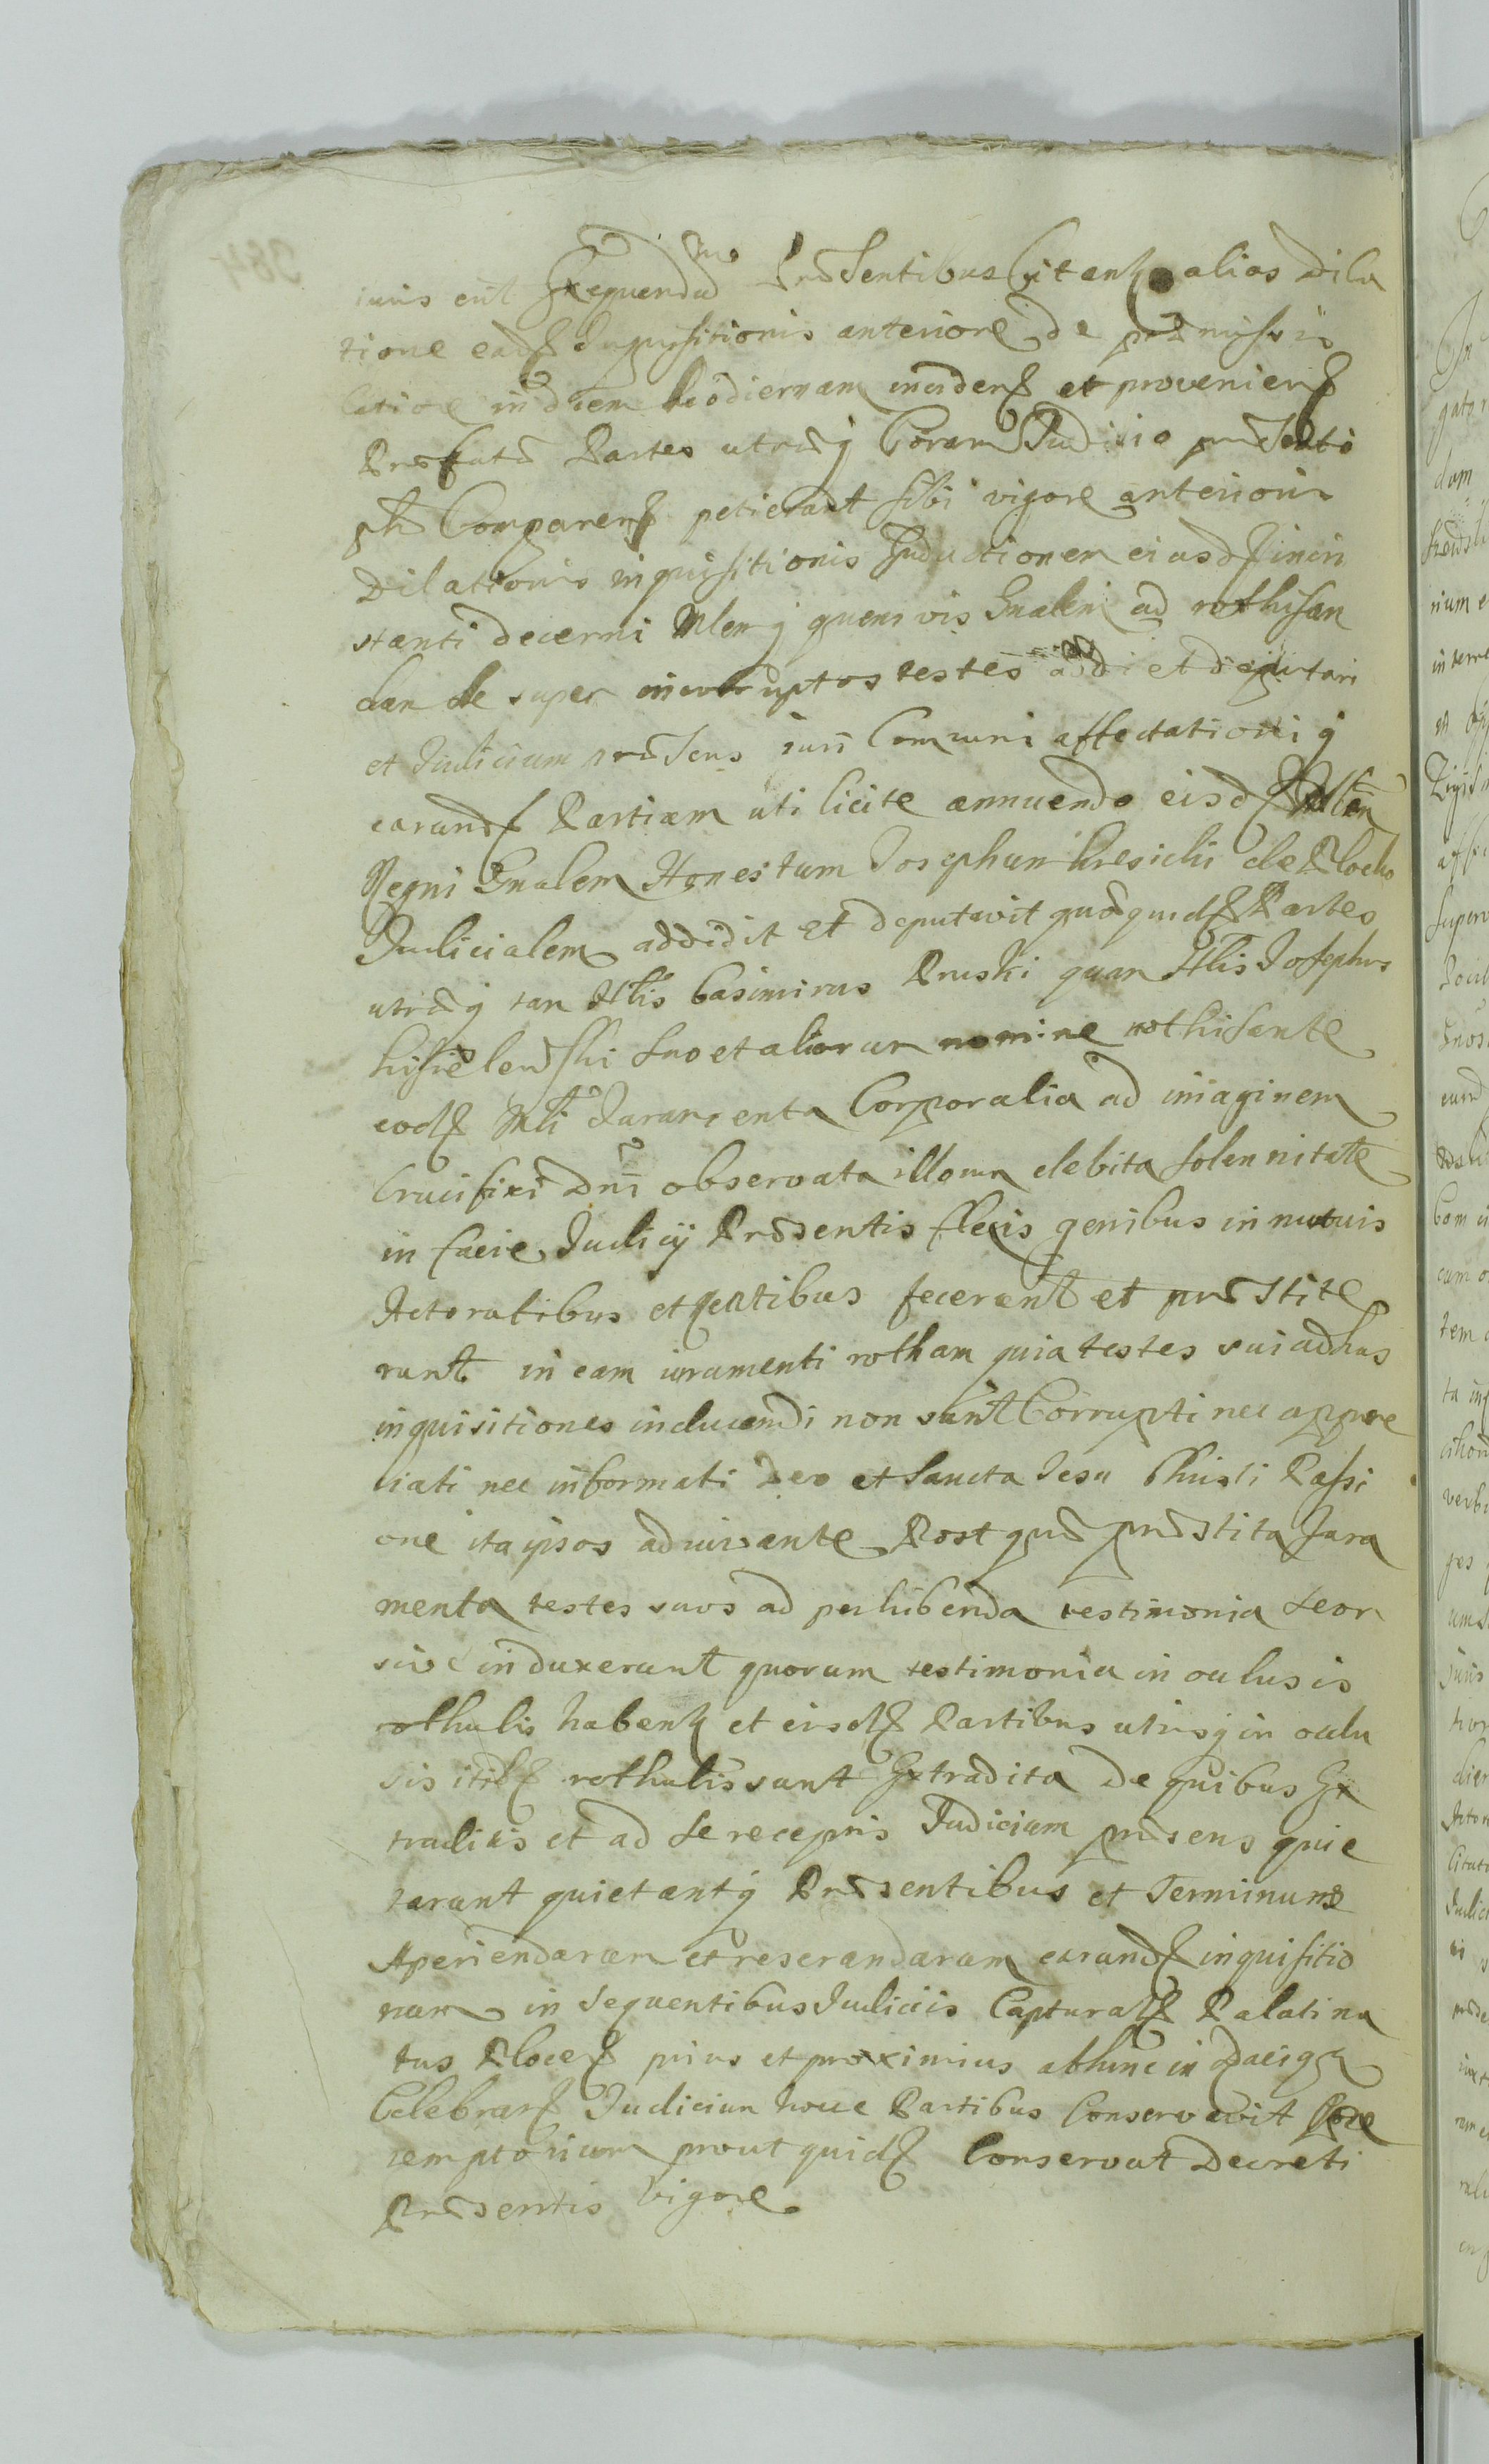 iuris eût Exequendū mo Prӕsentibus Citant alias Dila
tione ead Inquisitionis anteriore de prӕmissis
latione in diem hodiernam inciden et provenien
Prӕfatӕ Partes utrӕq Coram Judicio prӕsenti
pt Comparen petierant sibi vigore anterioris
Dilationis inquisitionis Inductionem eiusd in in
stanti decerni Mlemq quemvis Gnalem ad rothisan
dan de super incorruptos testes addi et deputari
et Judicium prӕsens iuri Comuni affectationiq
earund Partium uti licite annuendo eisd Mltem
Regni Gnalem Honestum Josephum Kresicki de Plocko
Judicialem addidit et deputavit quӕquid Partes
utrӕq tam Mlis Casimirus Pruski quam Mlis Josephus
Kisielenski suo et aliorum nomine rothisante
eod Mlti Juramenta Corporalia ad imaginem
Crucifixi Dni observata illorum debita solennitate
in facie Judicij Prӕsentis flexis genibus in mutuis
Actoratibus et Citibus fecerunt et prӕstite
runt in eam iuramenti rotham quia testes sui ad has
inquisitiones inducendi non sunt Corrupti nec appre
tiati nec informati Deo et Sancta Jesu Christi Passi
one ita ipsos adiuvante Post quӕ prӕstita Jura
menta testes suos ad perhibenda testimonia seor
sive induxerunt quorum testimonia in oclusis
rothulis habent et eisd Partibus utrisq in oclu
sis itid rothulis sunt Extradita De quibus Ex
traditis et ad se receptis Judicium prӕsens quie
tarunt quietantq Prӕsentibus et Terminum
Aperiendarum et reserandarum earund inquisitio
num in sequentibus Judiciis Captural Palatina
tus Plocen prius et proximius abhinc in Raciąż
Celebran Judicium hocce Partibus Conservavit Pere
remptorium prout quid Conservat Decreti
Prӕsentis vigore